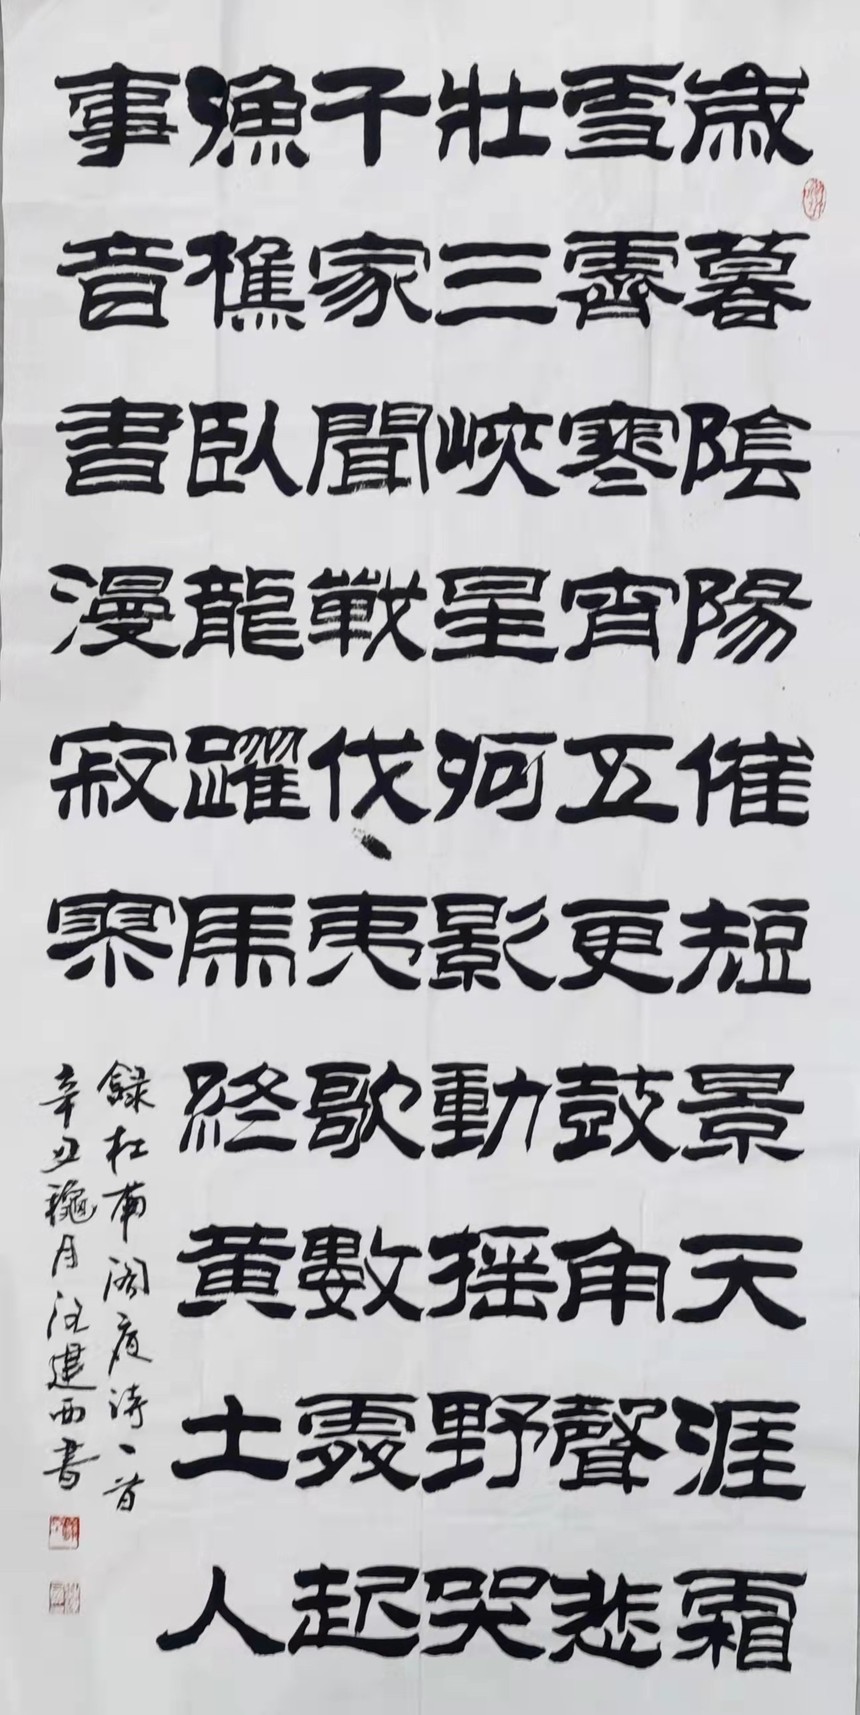 歲暮陰陽催短景天涯霜
雪霽寒宵五更鼓角聲悲
壯三峽星河影動搖野哭
千家聞戰伐夷歌數處起
漁樵臥龍躍馬終黄土人
事音書漫寂寥
錄杜甫閣夜詩一首
辛丑龝月汪建西書